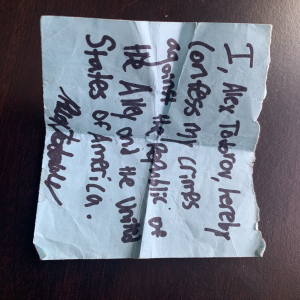 I, Alex Tubrov, hereby
confess my crimes
against the republic of
the Alley and the United
States of America.